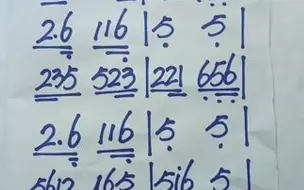 2.6 116 | 5 5 |
235 523 | 221 656 |
2.6 116 | 5 5 |
5612 165 | 516 5 |